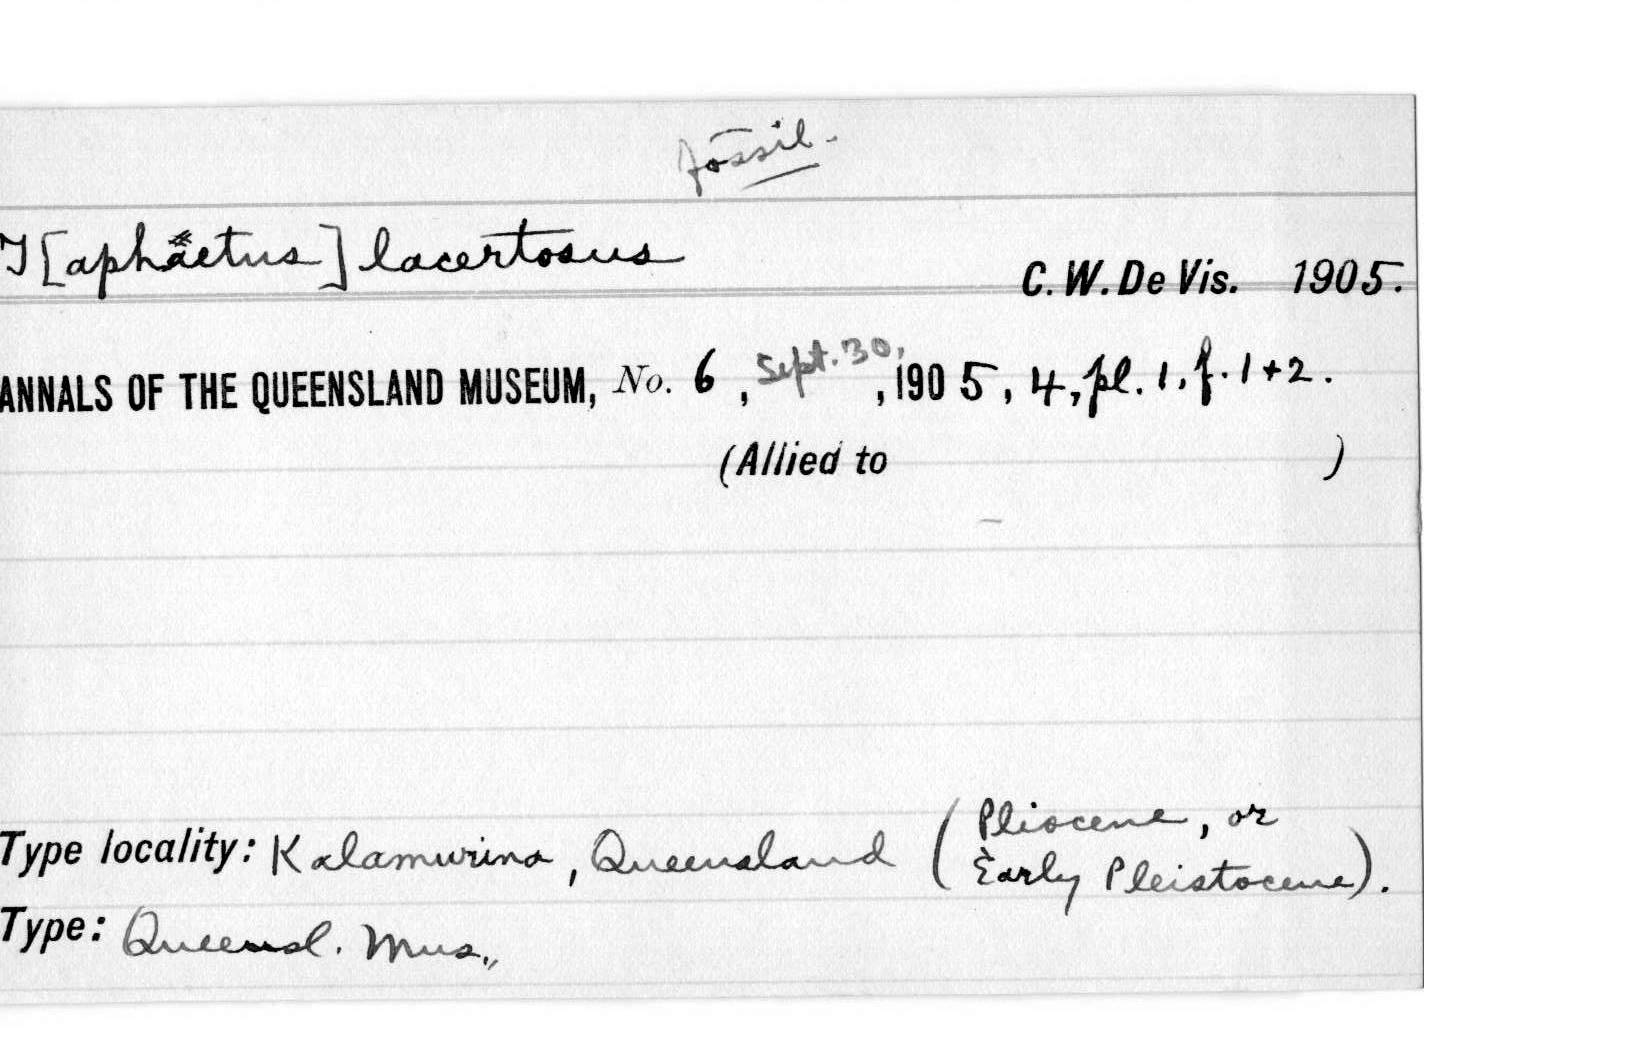 fossil.
T[aphaetus] lacertosus
C. W. De Vis. 1905.
ANNALS OF THE QUEENSLAND MUSEUM, No. 6, Sept. 30, , 1905, 4, pl. 1, f. 1+2.
(Allied to )
Type locality: Kalamurina, Queensland (Pliocene, or
Early Pleistocene).
Type: Queensl. Mus.,